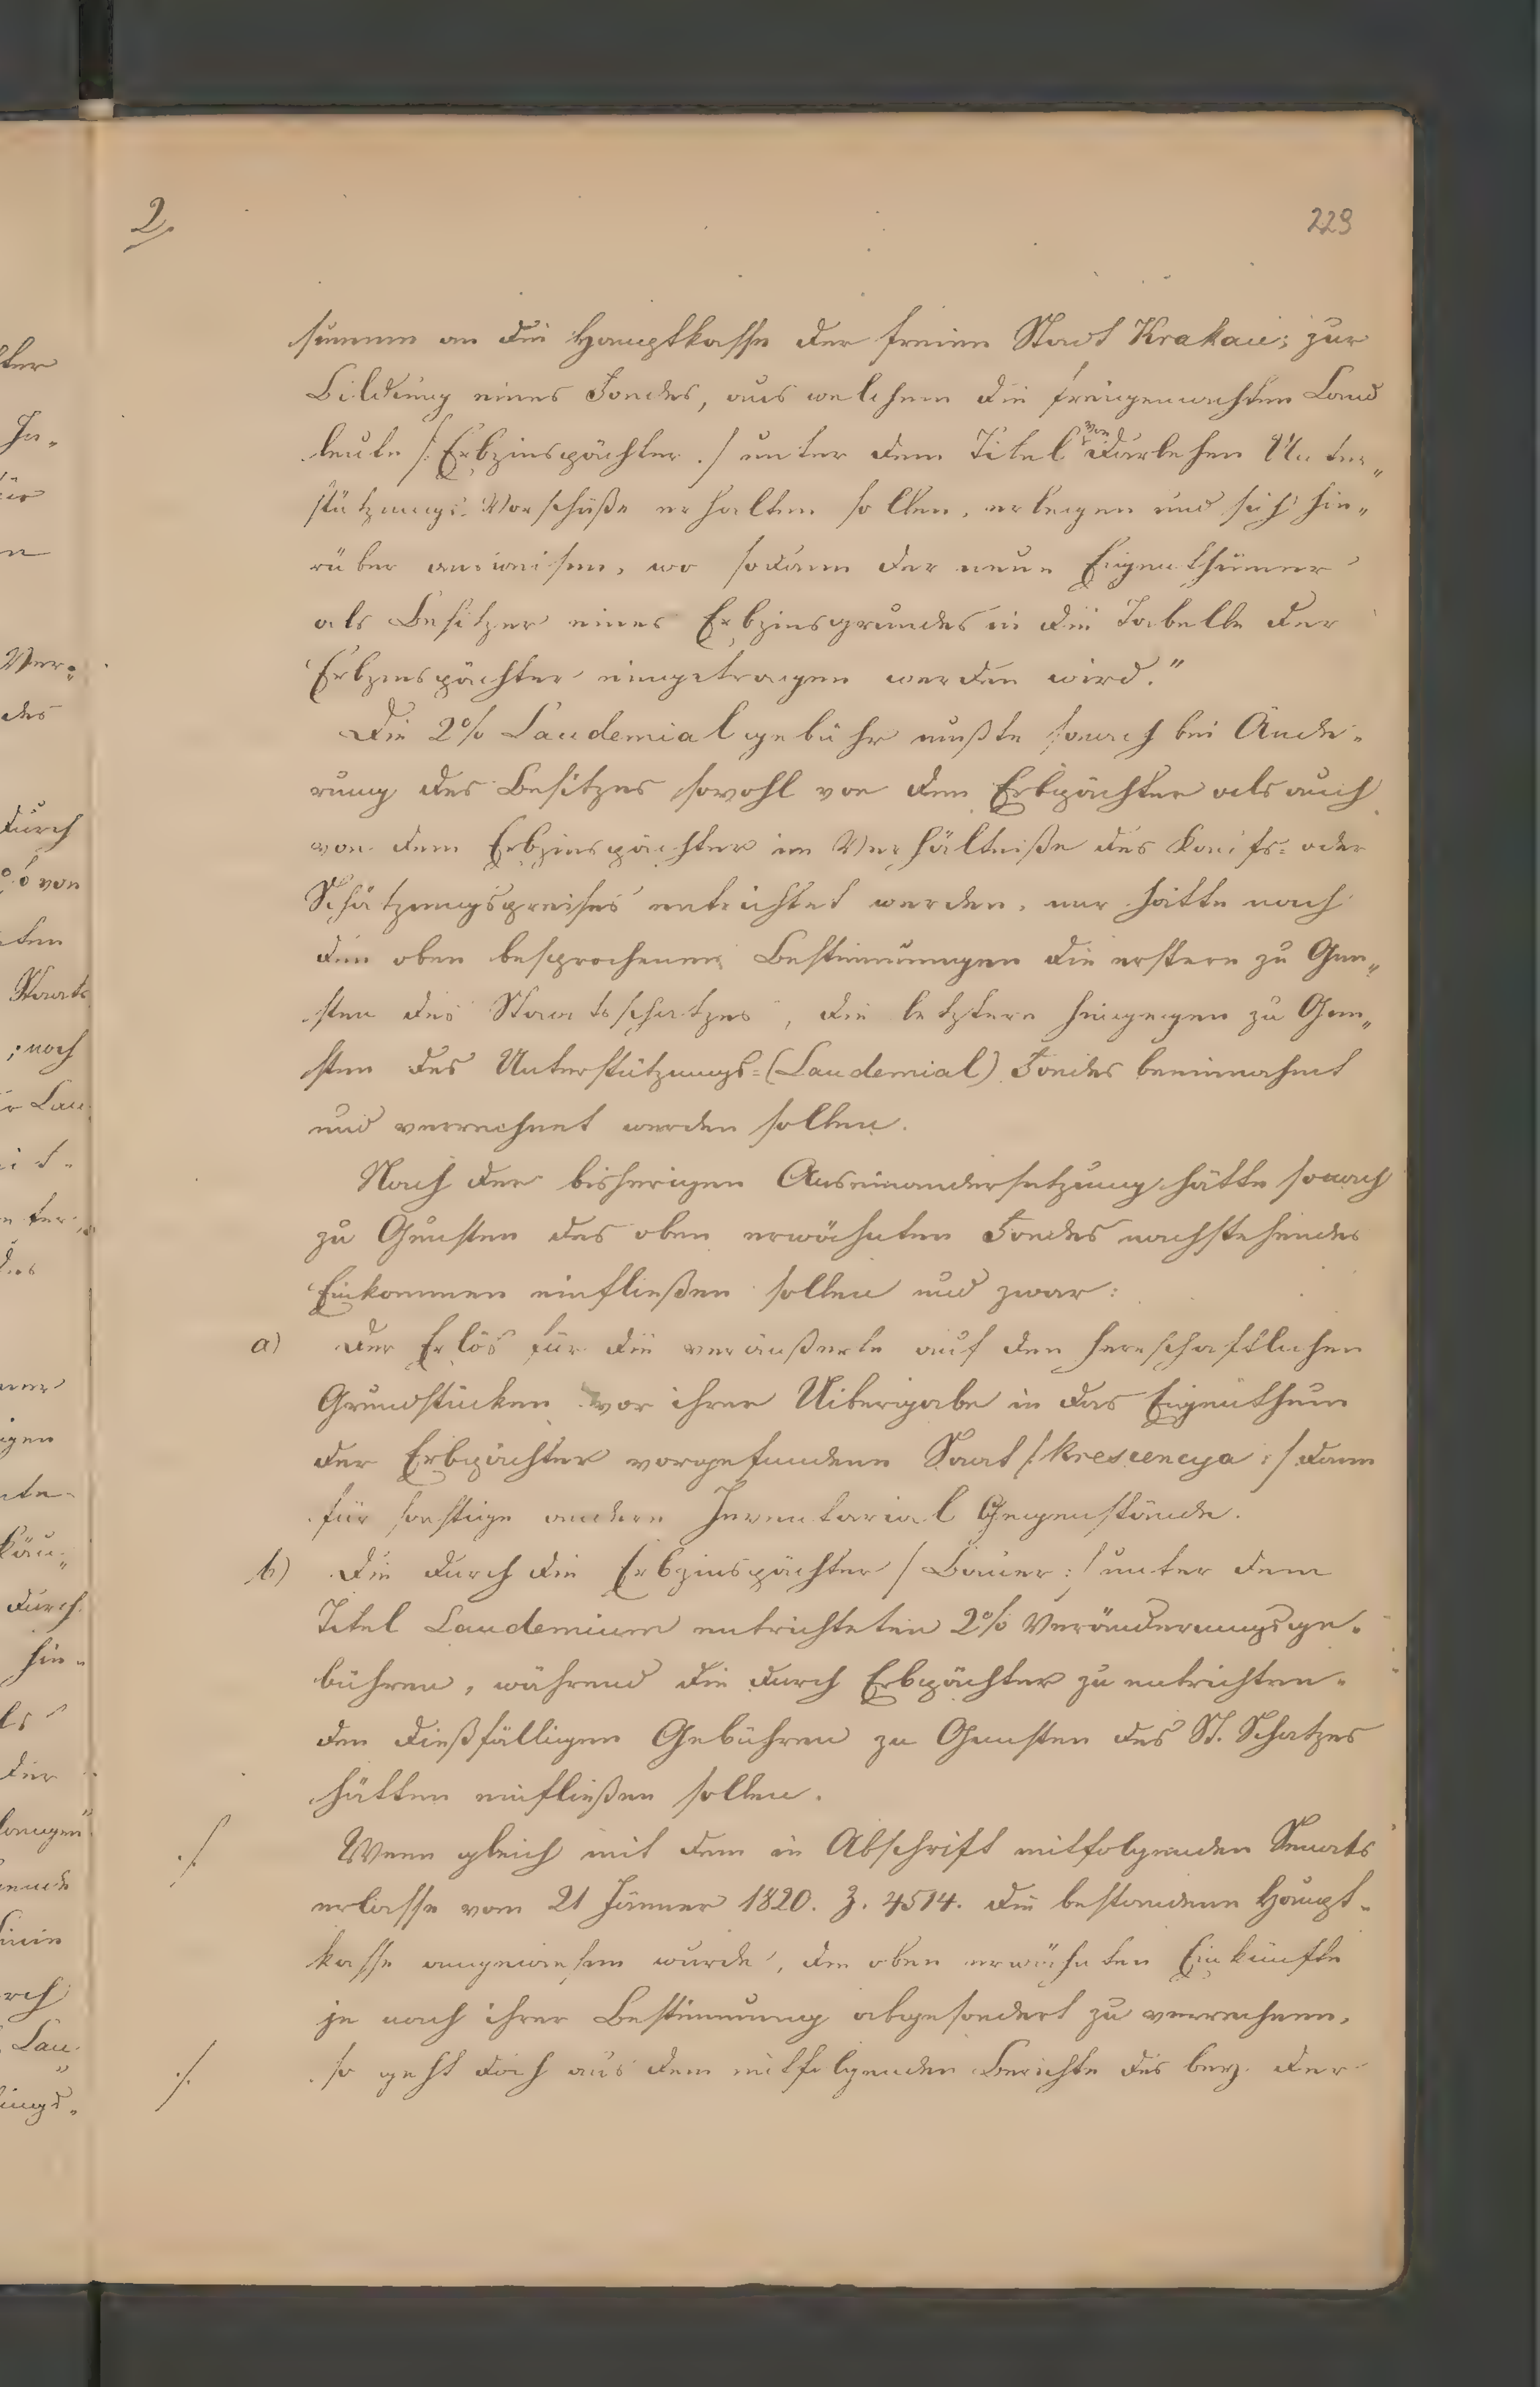 2.
229
summe an die Hauptkasse der freien Stadt Krakau; zur
Bildung eines Fondes, aus welchem die freigemachten Land
leute /: Erbzinspächter :/ unter dem Titel von Darlehen Unter„
stützungs-Vorschüße erhalten sollen, erlegen und sich hie„
rüber ausweisen, wo sodann der neue Eigenthümer
als Besitzer eines Erbzinsgrundes in die Tabelle der
Erbzinspächter eingetragen werden wird."
Die 2% Laudemialgebühr mußte sonach bei Ände-
rung des Besitzes sowohl von dem Erbpächter als auch
von dem Erbzinspächter im Verhältniße des Kaufs- oder
Schätzungspreises entrichtet werden, nur hätte nach
den oben besprochenen Bestimmungen die erstere zu Gun„
sten des Staatsschatzes, die letztere hingegen zu Gun„
sten des Unterstützungs-(Laudemial) Fondes beeinnahmt
und verrechnet werden sollen.
Nach der bisherigen Auseinandersetzung hätte sonach
zu Gunsten des oben erwähnten Fondes nachstehendes
Einkommen einfließen sollen und zwar:
a) Der Erlös für die veräußerte auf den herrschaftlichen
Grundstücken vor ihrer Uibergabe in das Eigenthum
der Erbpächter vorgefundene Saat /: krescencya :/ dann
für sonstige andere Inventarial Gegenstände.
b) Die durch die Erbzinspächter /: Bauer :/ unter dem
Titel Laudemium entrichteten 2% Veränderungsge-
bühren, während die durch Erbpächter zu entrichten-
den dießfälligen Gebühren zu Gunsten des St. Schatzes
hätten einfließen sollen.
./. Wenn gleich mit dem in Abschrift mitfolgenden Senats
erlasse vom 21 Jänner 1820. Z. 4514. die bestandene Haupt-
kasse angewiesen wurde, die oben erwähnten Einkünfte
je nach ihrer Bestimmung abgesondert zu verrechnen,
./. so geht doch aus dem mitfolgenden Berichte des bez. der